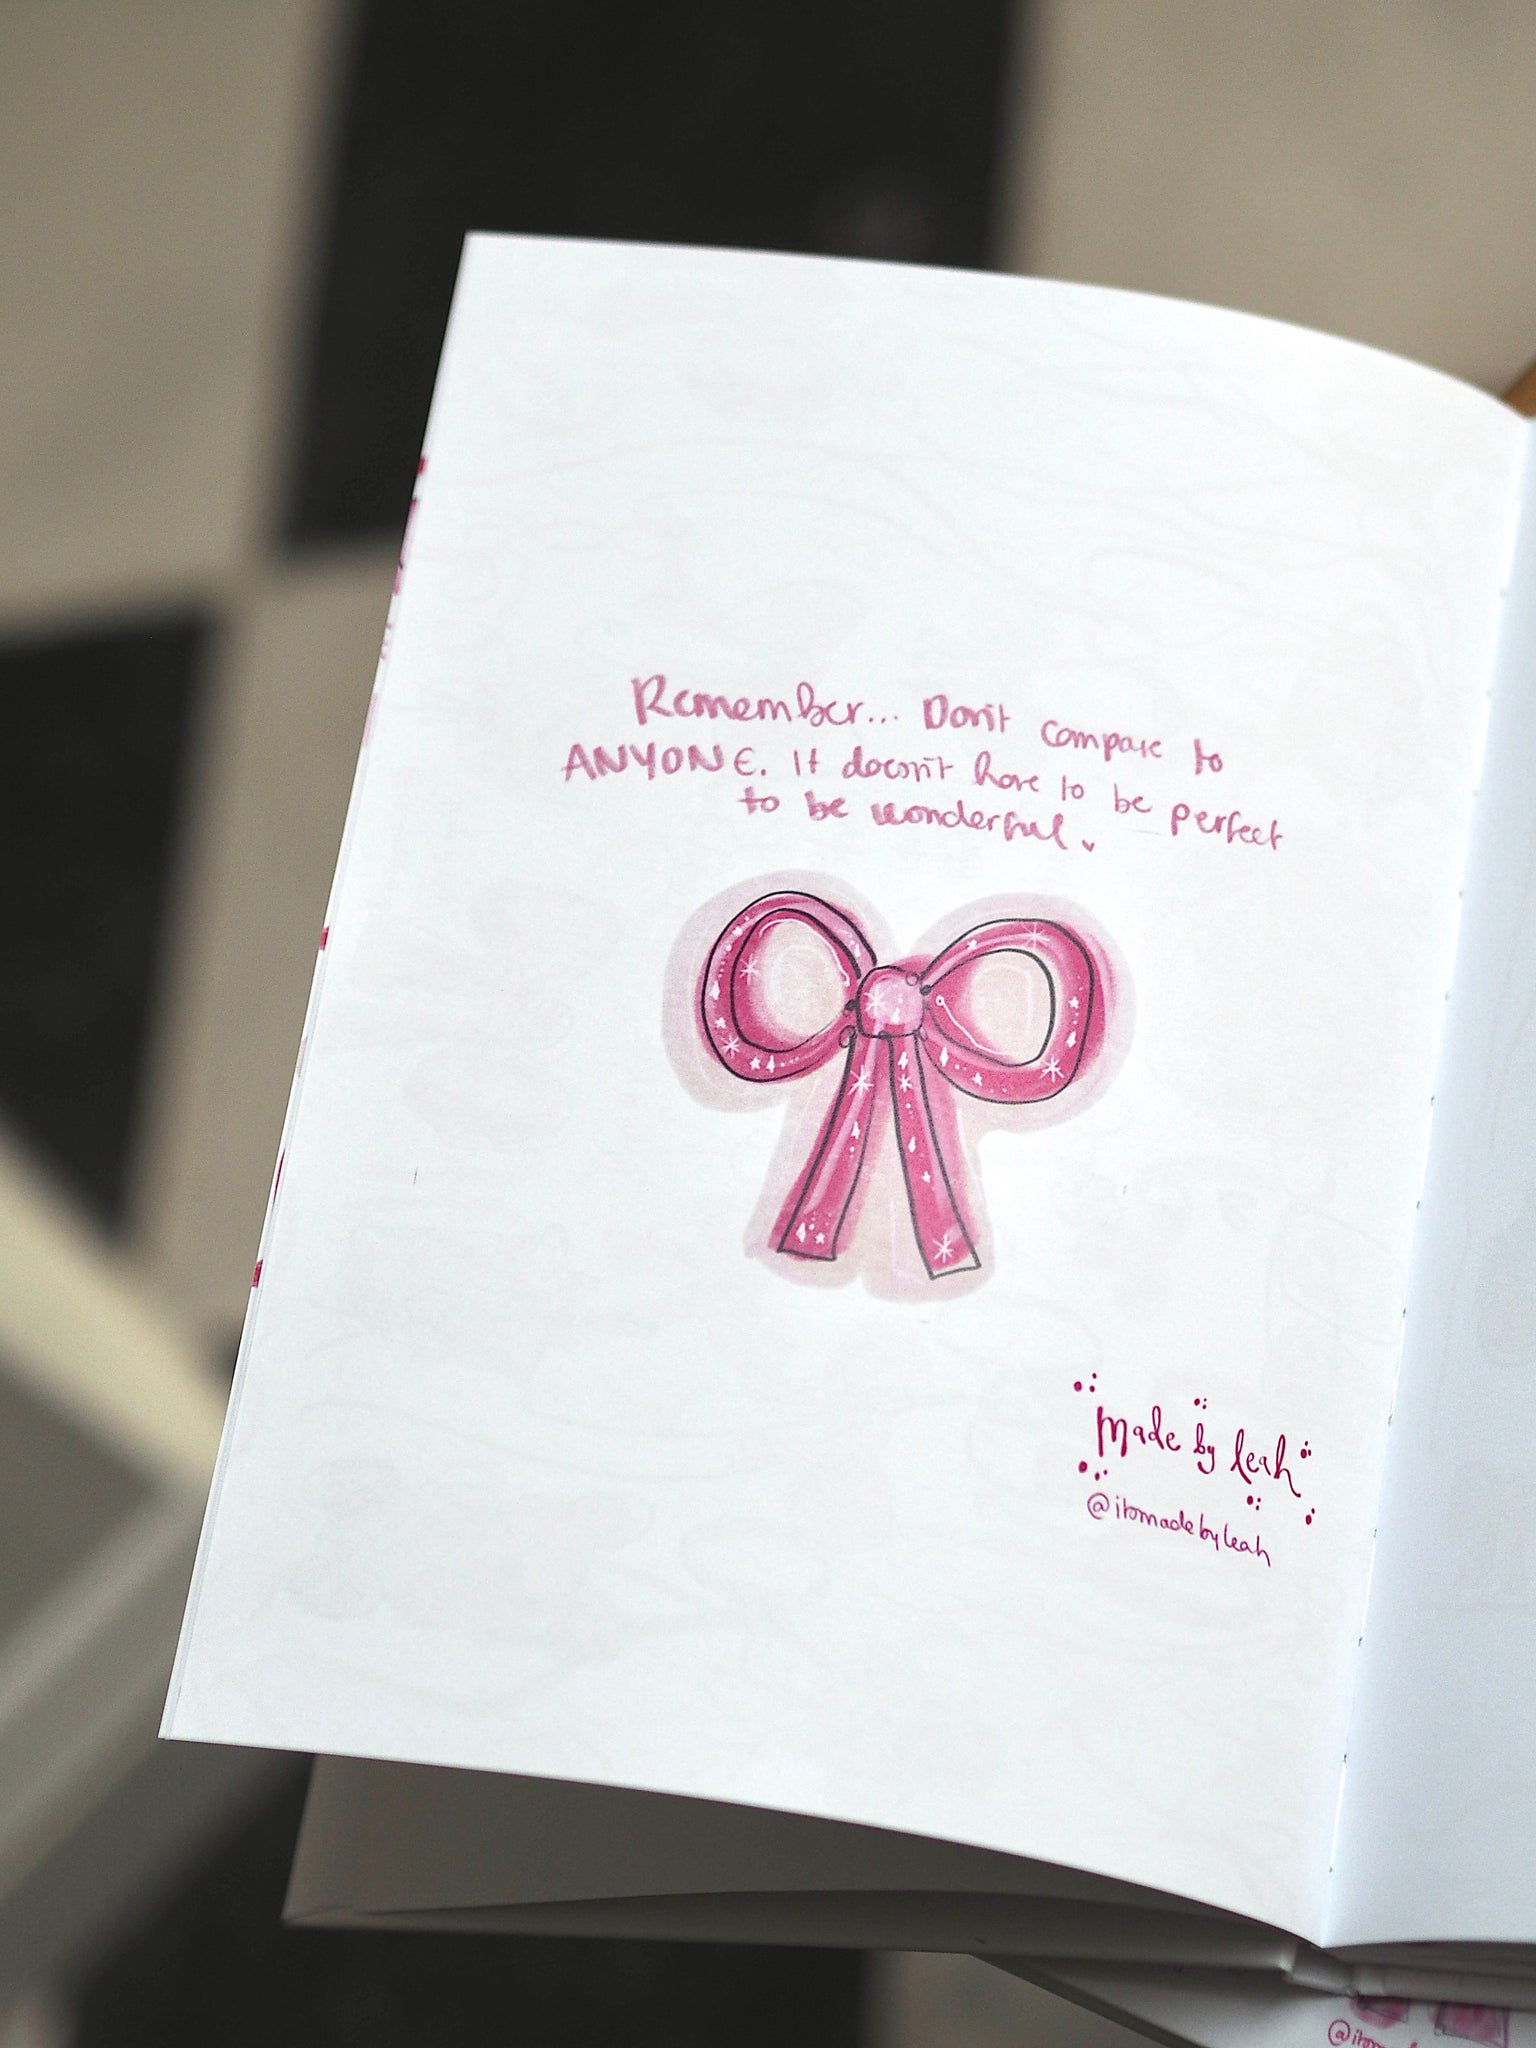 Remember... Don't compare to
ANYONE. It doesn't have to be perfect
to be wonderful.
made by leah
@itsmadebyleah